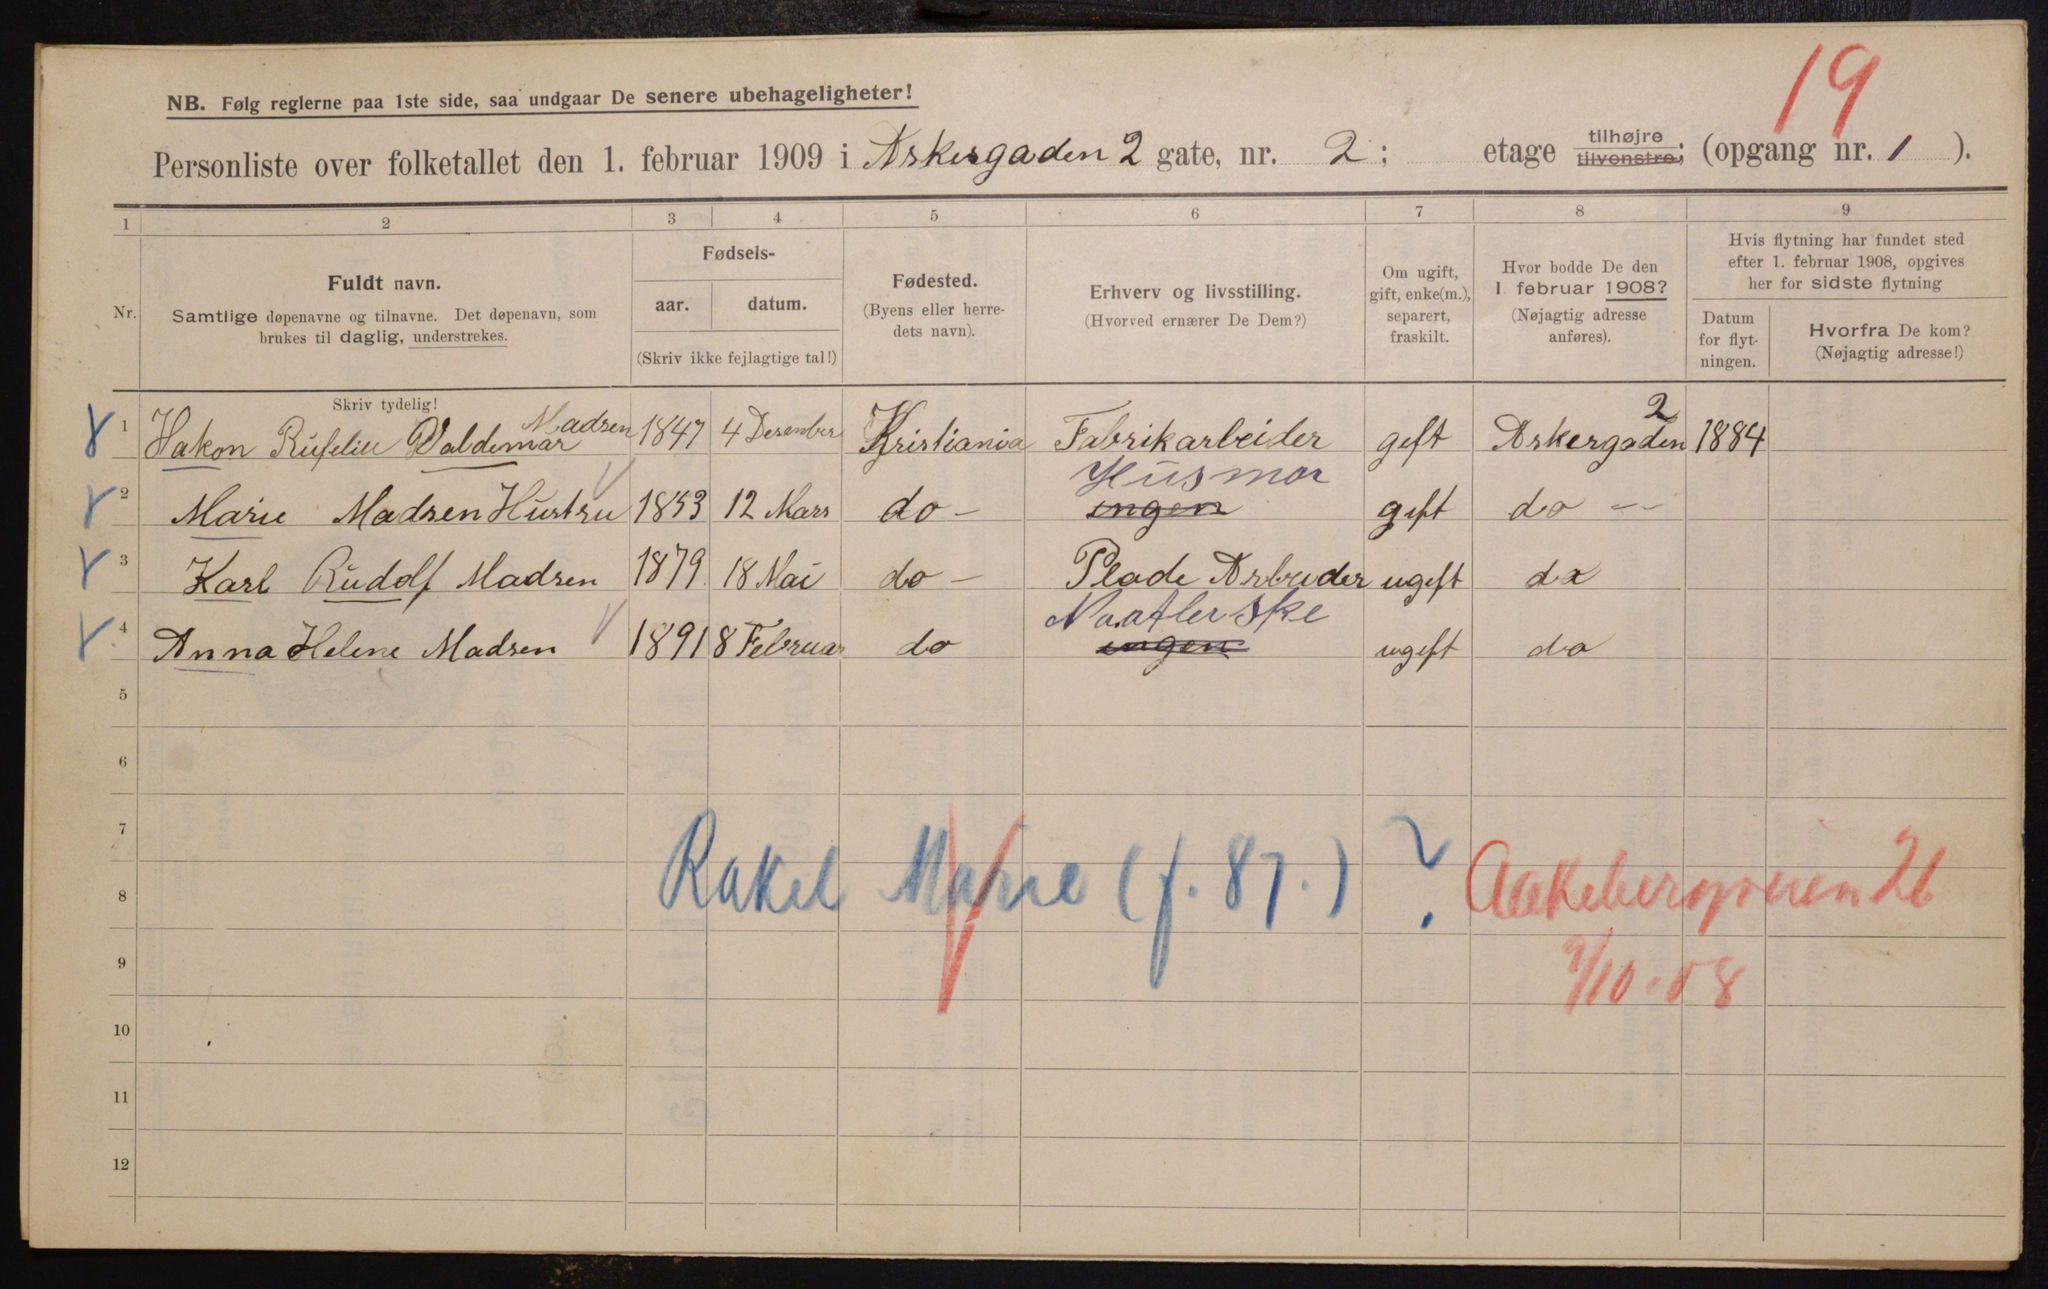 19
NB. Følg reglerne paa 1ste side, saa undgaar De senere ubehageligheter!
Personliste over folketallet den 1. februar 1909 i Askergaden 2 gate, nr. 2; etage tilhøjre tilvenstre; (opgang nr. 1).
1 2 3 4 5 6 7 8 9
Nr.
Fuldt navn.
Samtlige døpenavne og tilnavne. Det døpenavn, som
brukes til daglig, understrekes.
Fødsels-
aar. datum.
(Skriv ikke fejlagtige tal!)
Fødested.
(Byens eller herre-
dets navn).
Erhverv og livsstilling.
(Hvorved ernærer De Dem?)
Om ugift,
gift, enke(m.),
separert,
fraskilt.
Hvor bodde De den
1. februar 1908?
(Nøjagtig adresse
anføres).
Hvis flytning har fundet sted
efter 1. februar 1908, opgives
her for sidste flytning
Datum
for flyt-
ningen.
Hvorfra De kom?
(Nøjagtig adresse!)
Skriv tydelig!
1 Hakon Valdemar Madsen 1847 4 Desember Kristiania Fabrikarbeider geft Askergaden 2 1884
Husmor
2 Marie Madsen Hustru 1853 12 Mars do - ingen geft do --
3 Karl Rudolf Madsen 1879 18 Mai do - Plade Arbeider ugeft do
Naatlerske
4 Anna Helene Madsen 1891 8 Februar do ingen ugeft do
5
6
7
8 Rakel Marie (f. 87.) ? Aakebergveien 26
9 9/10-08
10
11
12